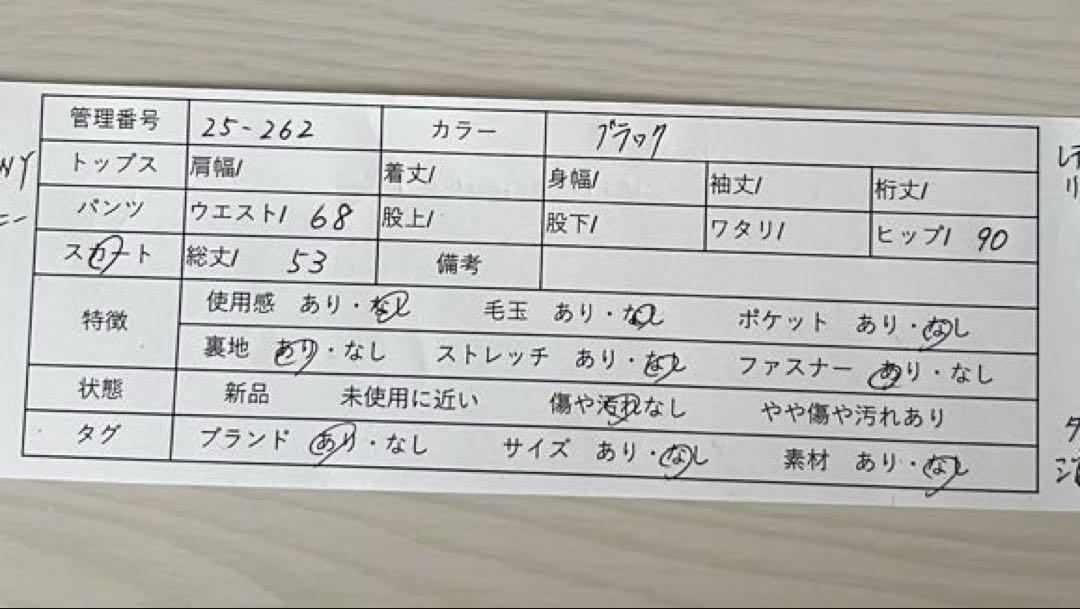 管理番号 25-262 カラー ブラック
トップス 肩幅/ 着丈/ 身幅/ 袖丈/ 裄丈/
パンツ ウエスト/ 68 股上/ 股下/ ワタリ/ ヒップ/ 90
スカート 総丈/ 53 備考
特徴 使用感 あり・なし 毛玉 あり・なし ポケット あり・なし
裏地 あり・なし ストレッチ あり・なし ファスナー あり・なし
状態 新品 未使用に近い 傷や汚れなし やや傷や汚れあり
タグ ブランド あり・なし サイズ あり・なし 素材 あり・なし